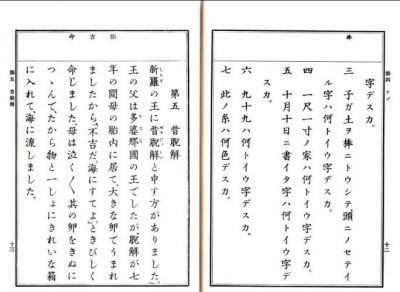 字デスカ。
三 子ガ土ヲ棒ニトウシテ頭ニノセテイ
ル字ハ何トイウ字デスカ。
四 一尺一寸ノ家ハ何トイウ字デスカ。
五 十月十日ニ書イタ字ハ何トイウ字デ
スカ。
六 九十九ハ何トイウ字デスカ。
七 此ノ糸ハ何色デスカ。
第四 ナゾ
十二
第五 昔脫解
新羅の王に昔脫解と申す方がありました。
王の父は多婆那國の王でしたが、脫解が七
年の間母の胎內に居て、大きな卵でうまれ
ましたから、「不吉だ、海にすてよ。」ときびしく
命じました。母は泣く〳〵、其の卵をきぬに
つゝんで、たから物と一しょにきれいな箱
に入れて、海に流しました。
第五 昔脫解
十三